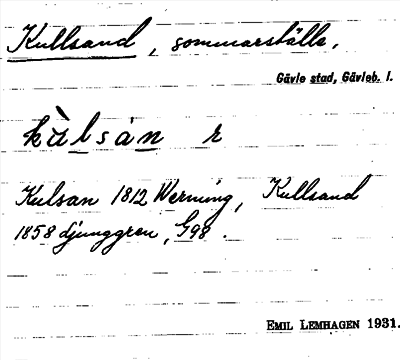 Kullsand, sommarställe.
Gävle stad, Gävleb. l.
kùlsàn r
Kulsan 1812 Werning, Kullsand
1858 Ljunggren, G98.
EMIL LEMHAGEN 1931.